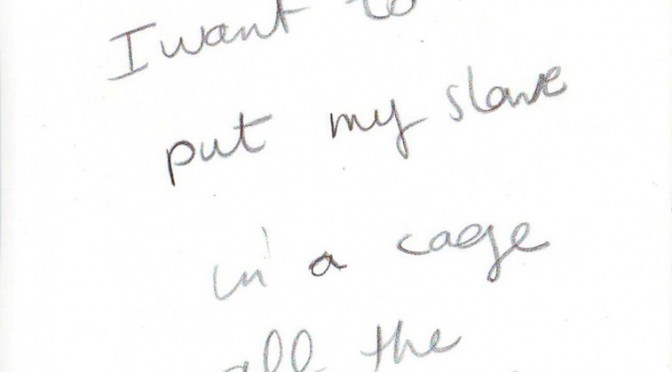 I want to
put my slave
in a cage
all the